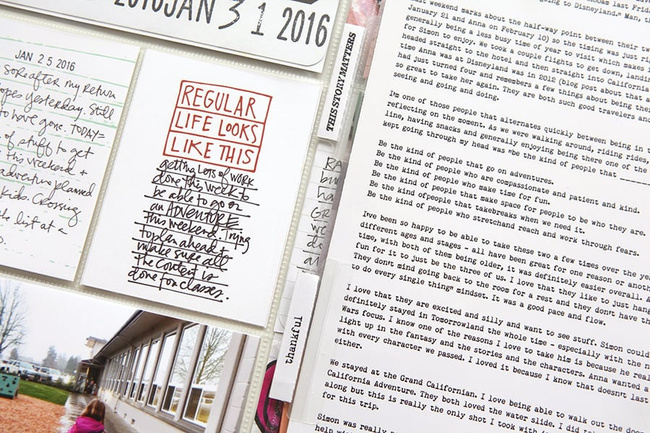 2016 JAN 31 2016
JAN 25 2016
sort after my return
yesterday. Still
to have gone. TODAY=
of stuff to get
this weekend +
adventure planned
kids. Crossing
list at a
REGULAR
LIFE LOOKS
LIKE THIS
getting LOTS OF WORK
done this week to
be able to go on
an ADVENTURE
this weekend. Trying
to plan ahead +
make sure all
the content is
done for classes.
THIS STORY MATTERS
thankful
going to Disneyland." Man,
last weekend marks about the half-way point between their two
January 21 and Anna on February 10) so the timing was just right
generally being a less busy time of year to visit which makes
for Simon to enjoy. We took a couple flights to get down, landing
headed straight to the hotel and then straight into California
time Anna was at Disneyland was in 2012 (blog post about that
had just turned four and remembers a few things about being there
so great to take her again. They are both such good travelers and
seeing and going and doing.
I'm one of those people that alternates quickly between being in the
reflecting on the moment. As we were walking around, riding rides,
line, having snacks and generally enjoying being there one of the
kept going through my head was "be the kind of people that
Be the kind of people that go on adventures.
Be the kind of people who are compassionate and patient and kind.
Be the kind of people who make time for fun.
Be the kind of people that make space for people to be who they are.
Be the kind ofpeople that takebreaks when we need it.
Be the kind of people who stretchand reach and work through fears.
I've been so happy to be able to take these two a few times over the years
different ages and stages - all have been great for one reason or another
time, with both of them being older, it was definitely easier overall. A
fun for it to just be the three of us. I love that they like to just hang
They dont mind going back to the room for a rest and they don't have the
to do every single thing" mindset. It was a good pace and flow.
I love that they are excited and silly and want to see stuff. Simon could
definitely stayed in Tomorrowland the whole time - especially with the
Wars focus. I know one of the reasons I love to take him is because he
light up in the fantasy and the stories and the characters. Anna wanted a
with every character we passed. I loved it because I know that doesnt last
either.
We stayed at the Grand Californian. I love being able to walk out the door
California Adventure. They both loved the water slide. I did
along but this is really the only shot I took with
for this trip.
Simon was really
help with